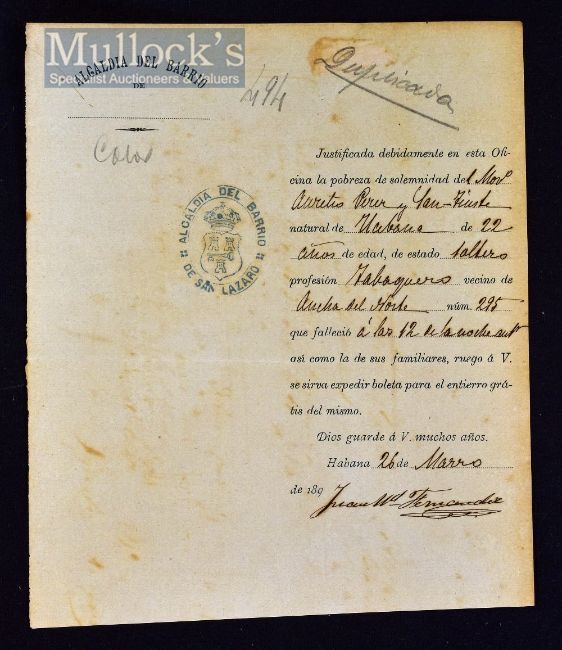 Mullock's
Specialist Auctioneers & Valuers
ALCALDIA DEL BARRIO
DE
494
Duplicada
ALCALDIA DEL BARRIO
DE SAN LAZARO
Justificada debidamente en esta Ofi-
cina la pobreza de solemnidad del Mor.º
Aurelio Perer y San
natural de Habana de 22
años de edad, de estado soltero
profesión Tabaquero vecino de
Ancha del Norte núm. 295
que falleció á las 12 de la noche
asi como la de sus familiares, ruego á V.
se sirva expedir boleta para el entierro grá-
tis del mismo.
Dios guarde á V. muchos años.
Habana 26 de Marzo
de 189
Juan Mª Fernandez